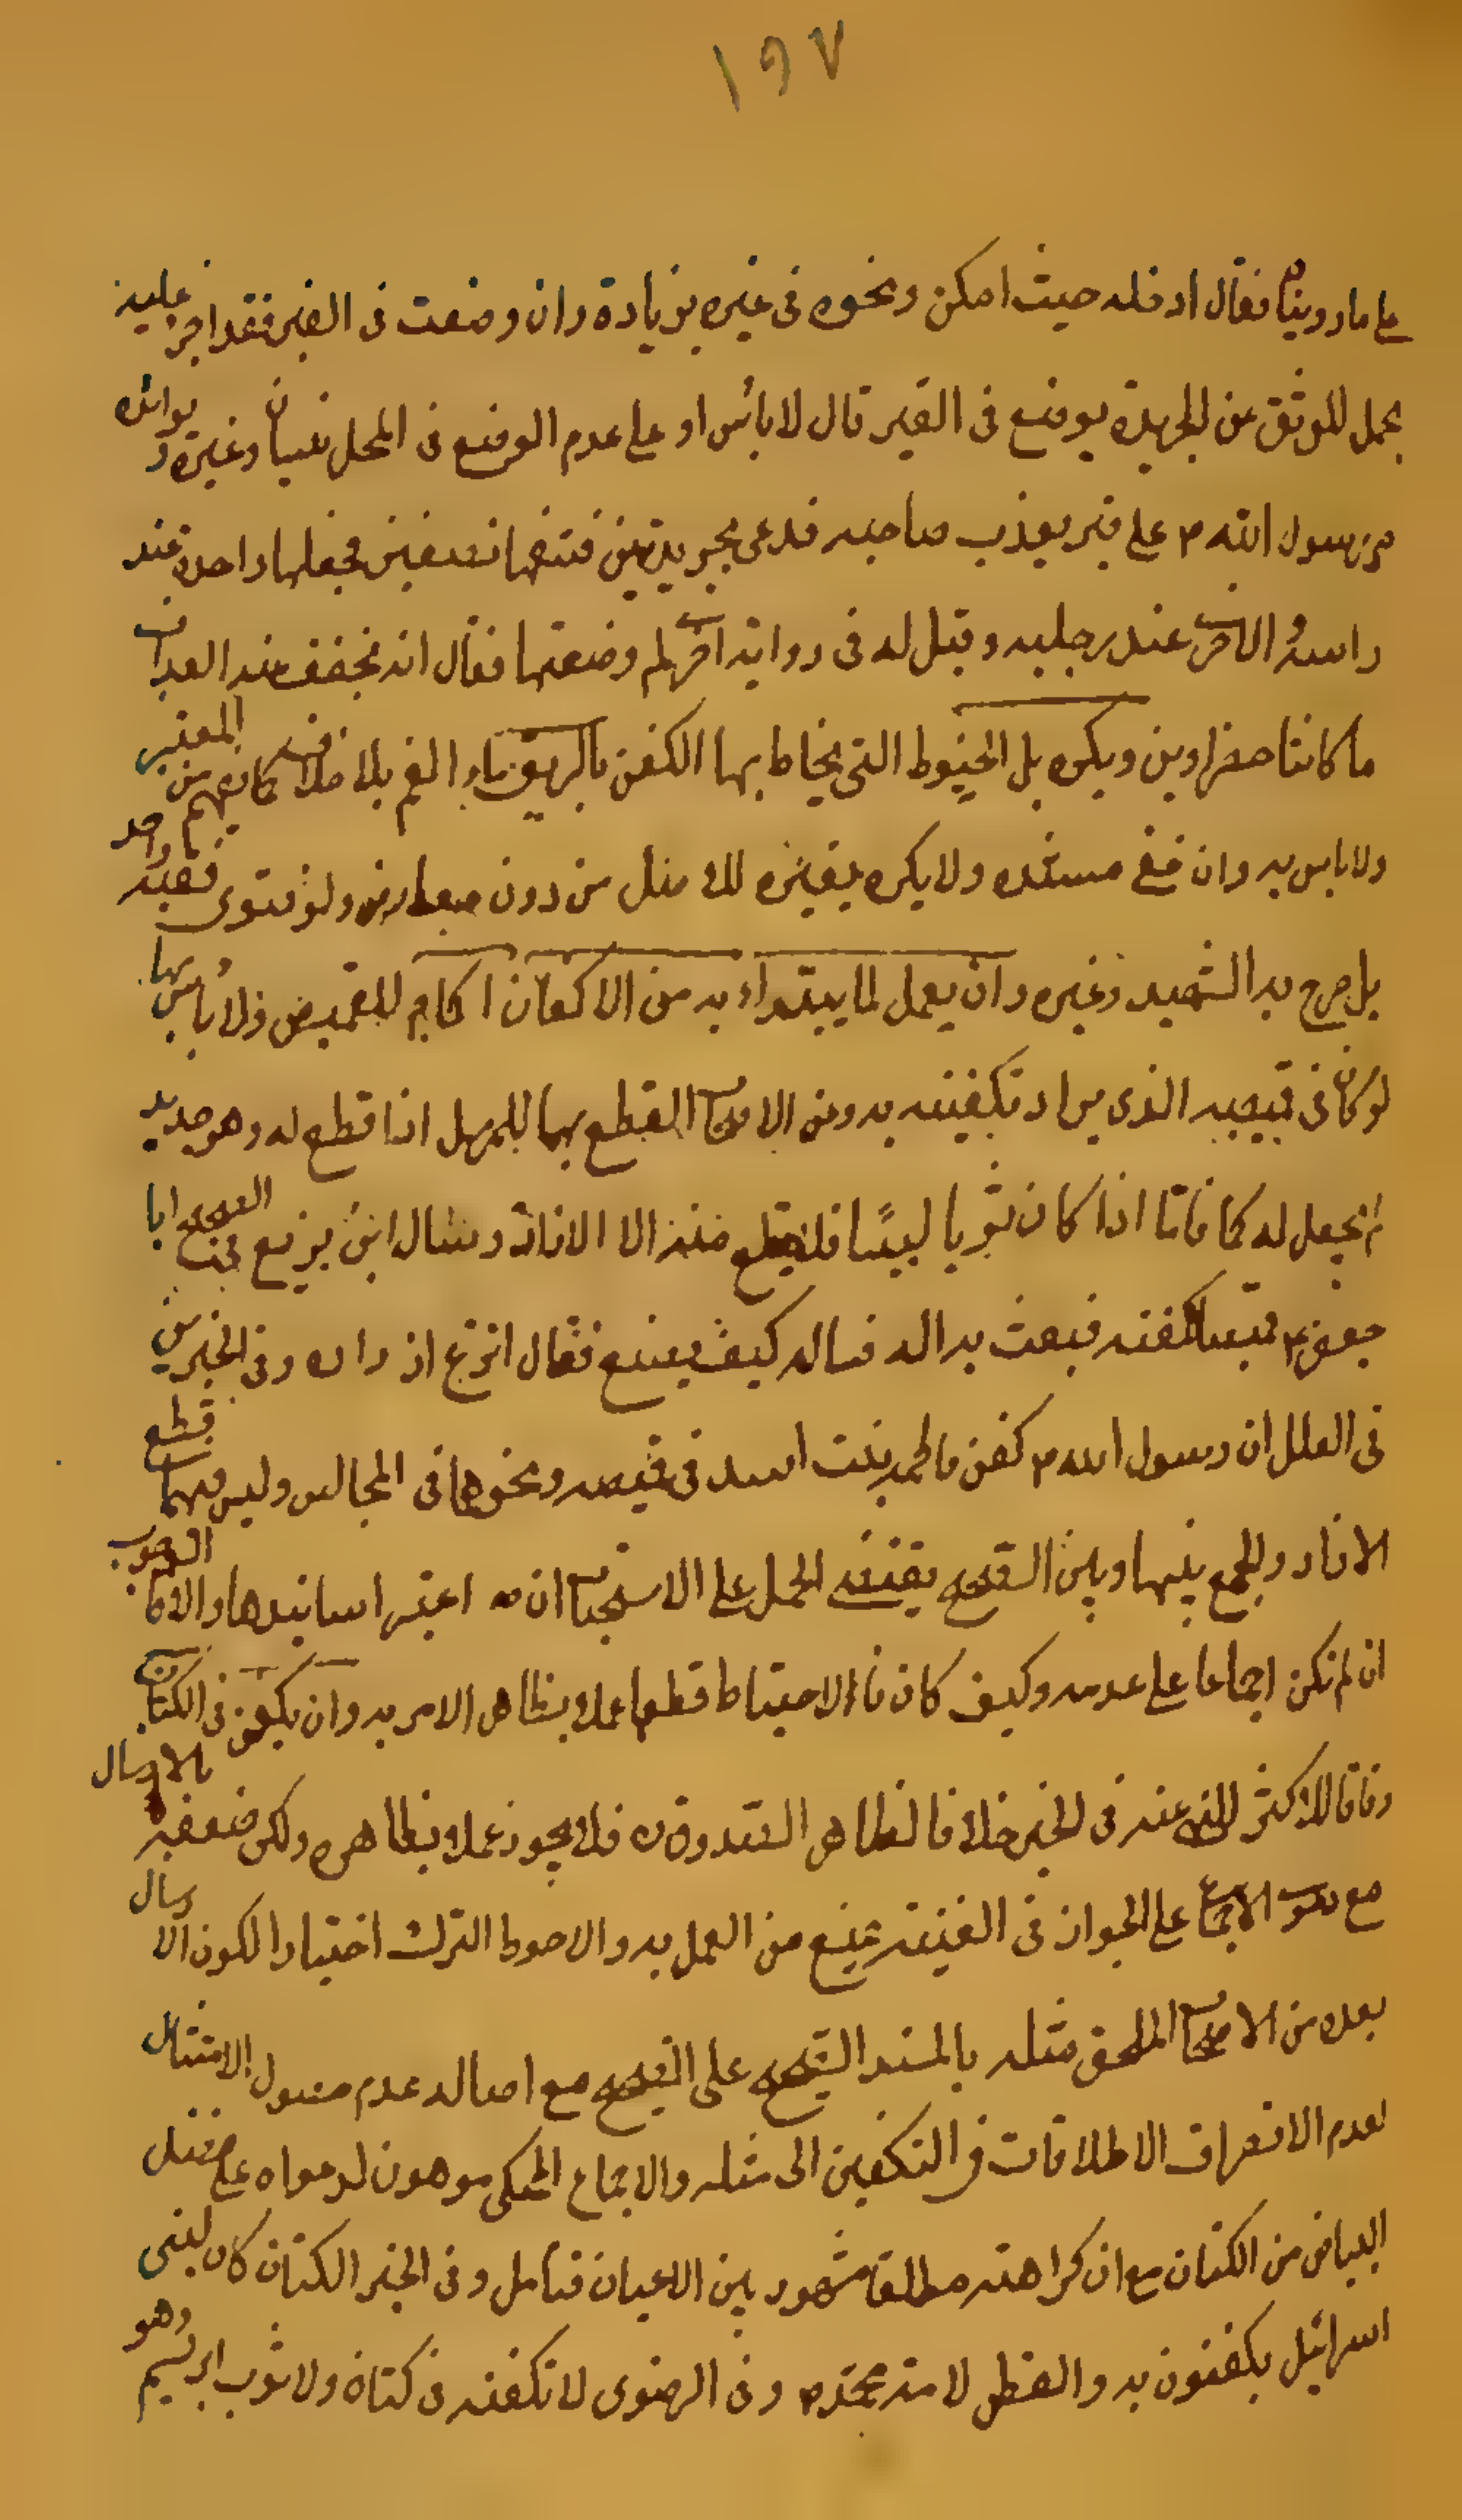 ١٩٧
على ما روينا فقال ادخله حيث امكن ونحوه فى غيره بزيادة وان وضعت فى القبر فقد اجزء عليه
يحمل الموثق عن الجريدة يوضع فى القبر قال لا بأس او على عدم الوضع فى المحل نسيان وغيره
مر رسول الله ص على قبر يعذب صاحبه فدعى بجريدتين فشقها نصفين فجعلها واحدة عند
راسه والاخرى عند رجليه وقيل له فى رواية اخرى لم وضعتها فقال انه يخفف عنه العذاب
ما كانتا خضراوين ويكره بل الخيوط التى يخاط بها الكفن بالريق ماء الفم بلا خلاف كما يفهم من المعتبر
ولا باس به وان فى مستنده ولا يكره بغيره للاصل من دون معارض ولو فتوى فقيه واحد
بل صرح به الشهيد وغيره وان يعمل لما يبتداء به من الاكفان اكمام للقميص ولا باس بها
لو كان فى قميصه الذى يراد تكفينه به وعن الاصحاب القطع بها للمرسل اذا قطع له وهو جديد
لم يجعل له كما فاما اذا كان ثوبا لبيسا فلا يقطع منه الا الازرار وسال ابن بزيع فى الصحيح ابا
جعفر ع قميصا لكفنه فبعث به اليه فساله كيف يصنع فقال انزع ازراره وفى الخبرين
فى العلل ان رسول الله ص كفن فاطمه بنت اسد فى قميصه ونحوها فى المجالس وليس فيهما قطع
الازرار والجمع بينها وبين الصحيح يقتضى الحمل على الاستحباب ان اعتبر اسانيدها والا فالوجوب
ان لم تكن اجماعا على عدمه وكيف كان فالاحتياط قطعها عملا بظاهر الامر به وان يكفن فى الكتان
وفاقا للاكثر للنهى عنه فى الخبر خلافا لظاهر الصدوق ره فلا يجوز عملا بظاهره ولكن ضعفه بالارسال
مع دعوى الاجماع على الجواز فى الغنيه يمنع من العمل به والاحوط الترك اختيارا لكون الارسال
بعده من الاصحاب الملحق مثله بالمسند الصحيح على الصحيح مع اصاله عدم حصول الامتثال
لعدم الانصراف الاطلاقات فى التكفين الى مثله والاجماع المحكى موهون لدعواه على فضل
البياض من الكتان مع ان كراهته مطلقا مشهور بين الاعيان فتامل وفى الخبر الكتان كان لبنى
اسرائيل يكفنون به والقطن لامة محمد ص وفى الرضوى لا تكفنه فى كتان ولا ثوب ابريسم وهو